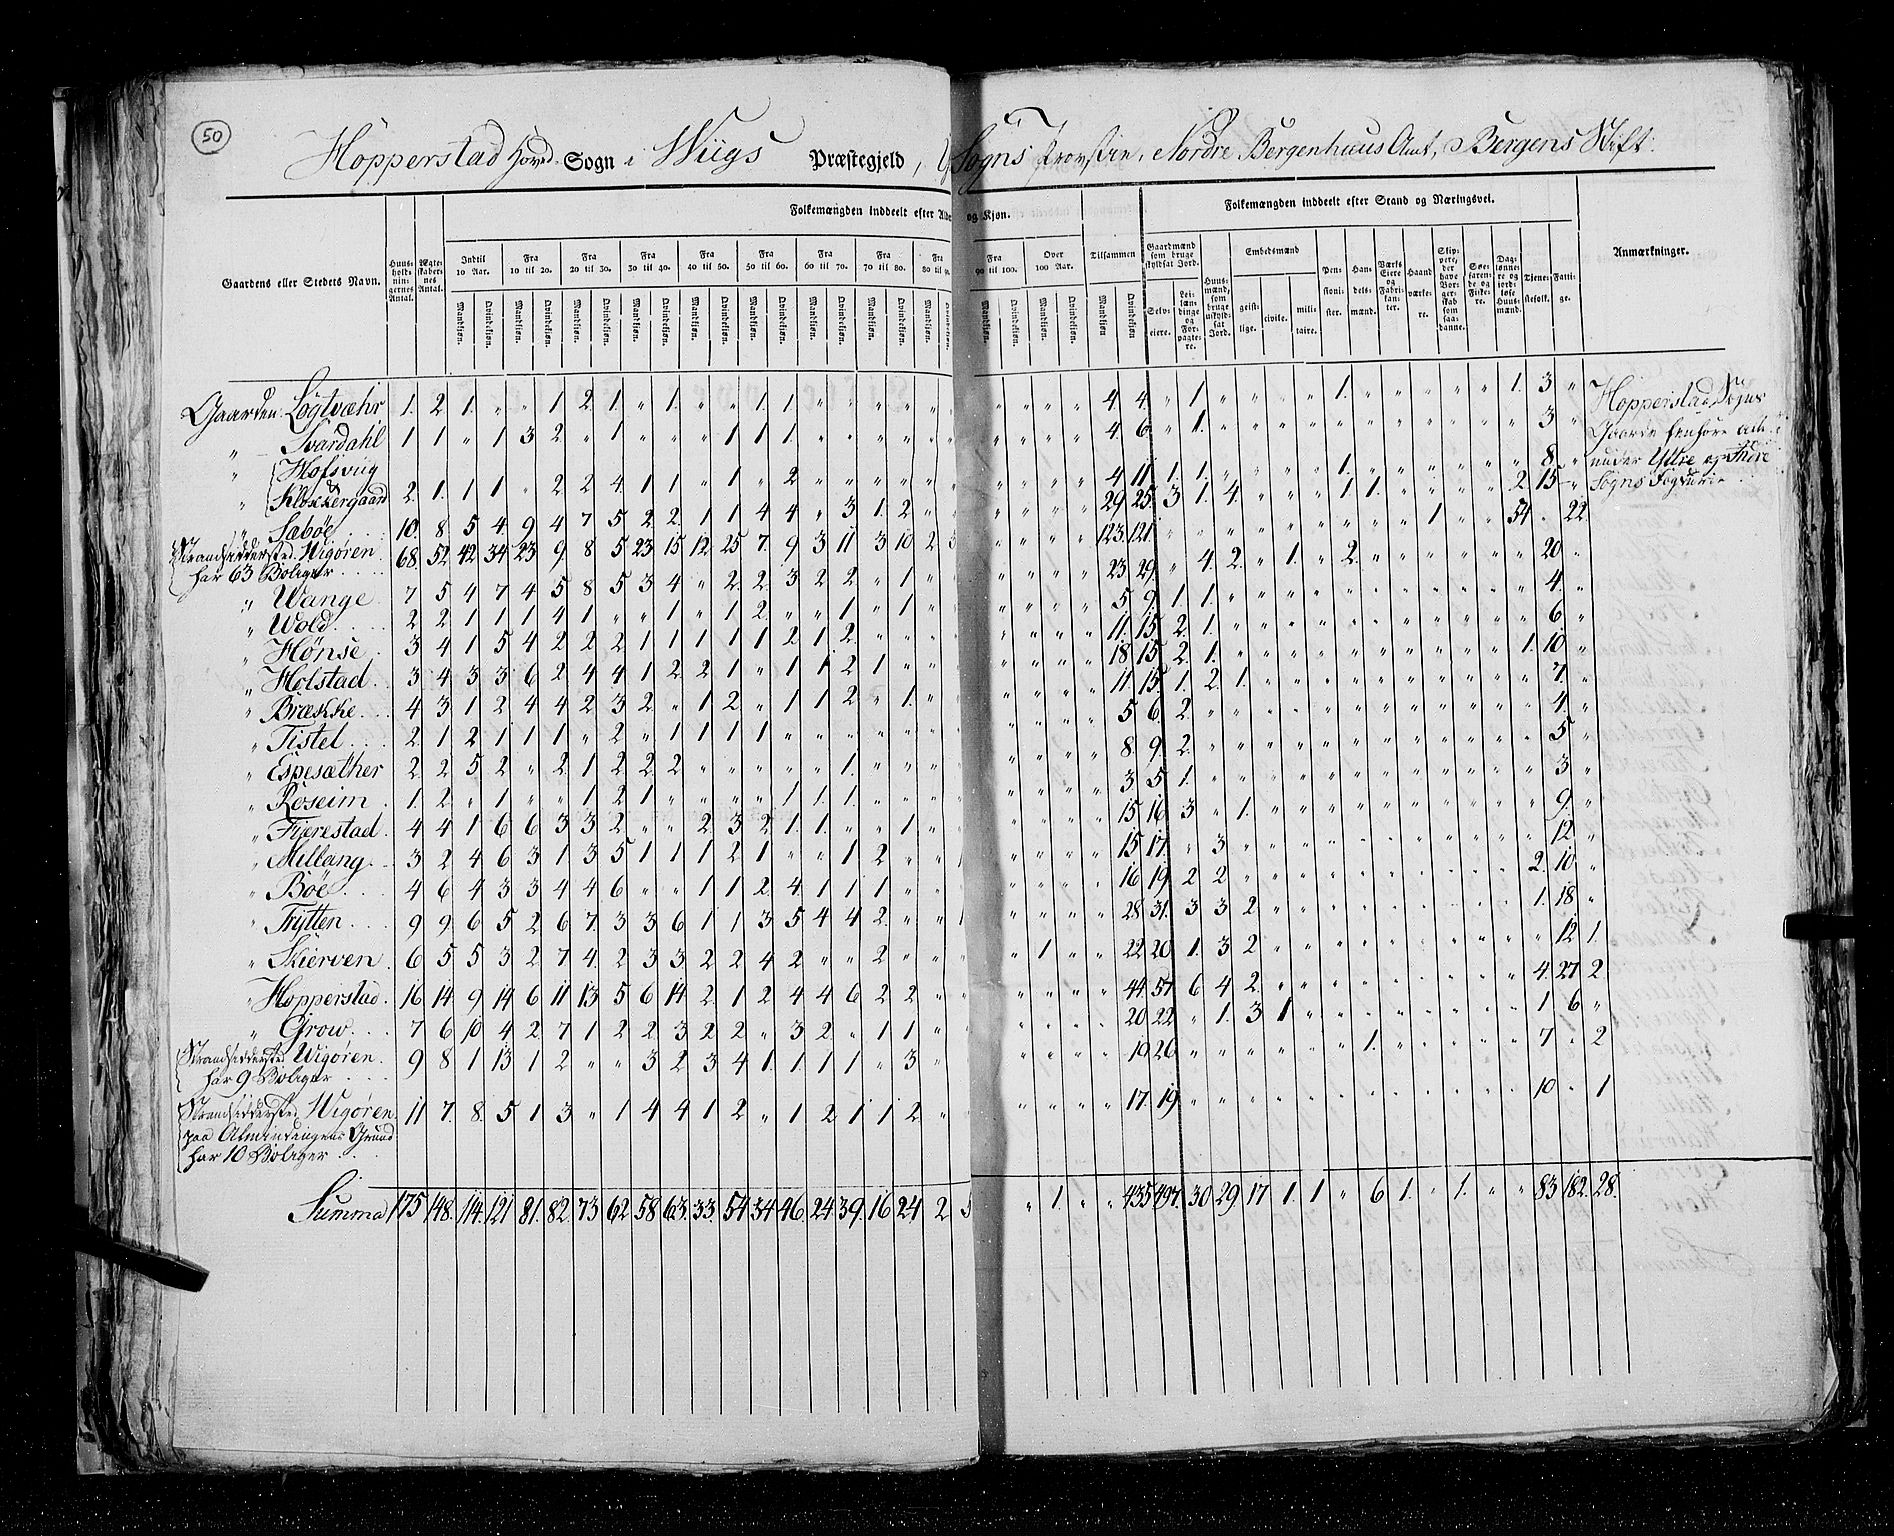 50
Hopperstad Hoved Sogn i Wiigs Præstegjeld, Sogns Provstie, Nordre Bergenhuus Amt, Bergens Stift.
Gaardens eller Stedets Navn.
Huusholdningernes Antal.
Ægteskabernes Antal.
Folkemængden inddeelt efter Alder og Kjøn.
Indtil 10 Aar. Fra 10 til 20. Fra 20 til 30. Fra 30 til 40. Fra 40 til 50. Fra 50 til 60. Fra 60 til 70. Fra 70 til 80. Fra 80 til 90. Fra 90 til 100. Over 100 Aar. Tilsammen
Mandkjøn. Qvindekjøn.
Folkemængden inddeelt efter Stand og Næringsvei.
Gaardmænd som bruge skyldsat Jord.
Selveiere. Leilændinge og Forpagtere.
Huusmænd, som bruge uskyldsat Jord.
Embedsmænd
geistlige. civile. militaire.
Pensionister. Handelsmænd. Værks Eiere og Fabrikanter. Haandværkere.
Skippere, der have Borgerskab som saadanne.
Søefarende og Fiskere.
Daglønnere og jordløse Huusmænd.
Tjenestefolk. Fattige.
Anmærkninger.
Gaarden Løgtvæhr 1. 2. 1. " " 1 2. 1. " 1. " " 1. 1. " " " " " " " " " " 4. 4. " 1. " " " " 1. " " " " " 1. 3 "
" Svardahl 1 1 " 1 3 2 " 1 " " " 1 1 1. " " " " " " " " " " 4. 6. " 1. " " " " " " " " " " " 3 "
" Hofsviig & Klokkergaard 2. 1. 1 1 " 2 2 4. 1 1 " 1 " 2 " " " " " " " " " " 4 11 1. 1. " " " " 1. " " " " " " 8. "
" Sæbøe 10. 8. 5 4. 9 4 7 5 2 2 1 1 4 4 " 3 1. 2 " " " " " " 29 25. 3 1. 4. " " " 1 1. " " " " 2. 15 "
Strandsiddersted Wigøren har 63 Boliger 68. 52 42 34 23 9. 8 5 23 15 12. 25 7. 9 3 11 3 10 2 3 " " " " 123. 121. " " " " " " " " " 1 " " 54 " 22
" Wange 7 5 4 7 4 5 8 5 3 4 " 2 2 3 2 2 " 1 " " " " " " 23 29. " 4. 2. " 1. " 2. " " " " " " 20 "
" Wold 2 2 1 1 1 4 1 " " 1 " 1 2 " " 1 " 1 " " " " " " 5 9. 1. 1. " " " " " " " " " " " 4. "
" Hønse 3 4 1 5 4 2 2 2 1 1 1 1 1 2 1 2 " " " " " " " " 11. 15. 2. 1. " " " " " " " " " " " 6. "
" Holstad 3 4 3 3 6 2 4 4 1 2 2 1 " 1 1 2 1 " " " " " " " 18 15 2. 1. " " " " " " " " " " 1. 10 "
" Brække 4 3 1 2 4 4 2 3 2 " 1 2 " 1 1 2 " 1. " " " " " " 11. 15. 1. 2. 1. " " " " " " " " " " 7. "
" Tistel 2. 1. 2 1 1 1 " 2 " 1 1 1 1 " " " " " " " " " " " 5 6. 2. " " " " " " " " " " " " 4. "
" Espesæther 2 2 5 2 " 2 1 2 2 2 " " " " " 1. " " " " " " " " 8. 9. 2. " " " " " " " " " " " " 5 "
" Roseim 1. 2. " 1 " " 1 2 1 " " " " 1 1. 1 " " " " " " " " 3 5 1. " " " " " " " " " " " " 3 "
" Fjerestad 4 4 1 6 6 3 3 2 " " 2 3 2 1. 1. " " 1 " " " " " " 15 16 3 " 1. " " " " " " " " " " 9. "
" Mellang 3 2 4 6 3 1 3 5 1 1 1 2 1 " " 1 2 " " 1 " " " " 15. 17. " 3 " " " " " " " " " " " 12. "
" Bøe 4 6 4 3 3 4 4 6 " " 1 1 2 4 1 1 1 " " " " " " " 16 19. 2 2 " " " " " " " " " " 2. 10 "
" Trytten 9 9. 6 5 2 6 7. 3 3 6 1 1 3 5 4 4 2. " " 1 " " " " 28 31. 3 3 2 " " " " " " " " " 1. 18 "
" Skierven 6 5 5 3 2 7 4. 2 3 3 2 2 4 2 " " 2 " " " " 1 " " 22 20 1. 3 2 " " " " " " " " " " 12 1.
" Hopperstad 16 14. 9 14 6 11 13 5 6 14 2 1 2 4 4 6 2 2 " " " " " " 44. 57 6 4 2 " " " " " " " " " 4. 27 2
" Grow 7 6 10 4 2 7 1 2 2 3 2 2 " 3 2 " 1 1 " " " " " " 20 22 " 1. 3 1 " " " " " " " " 1 6 "
Strandsiddersted Wigøren har 9 Boliger 9 8 1 13 1 2 " " 3 2 3 4 1. 1. 1 1 " 3 " " " " " " 19 26 " " " " " " " 1. " " " " 7 " 2
Strandsiddersted Wigøren paa Almindingens Grund har 10 Boliger 11 7. 8. 5 1 3 " 1 4 4 1 2 " 1 2 1 1 2 " " " " " " 17. 19 " " " " " " " " " " " " 10 " 1
Summa 175 148. 114. 121 81. 82. 73 62 58 63. 33. 54 34 46. 24 39. 16 24 2 5 " 1. " " 435 497. 30 29. 17 1. 1 " 6 1. " 1. " " 83 182. 28.
Hopperstad Sogns
Gaarde henhøre
under Yttre og Indre
Sogns Fogderie